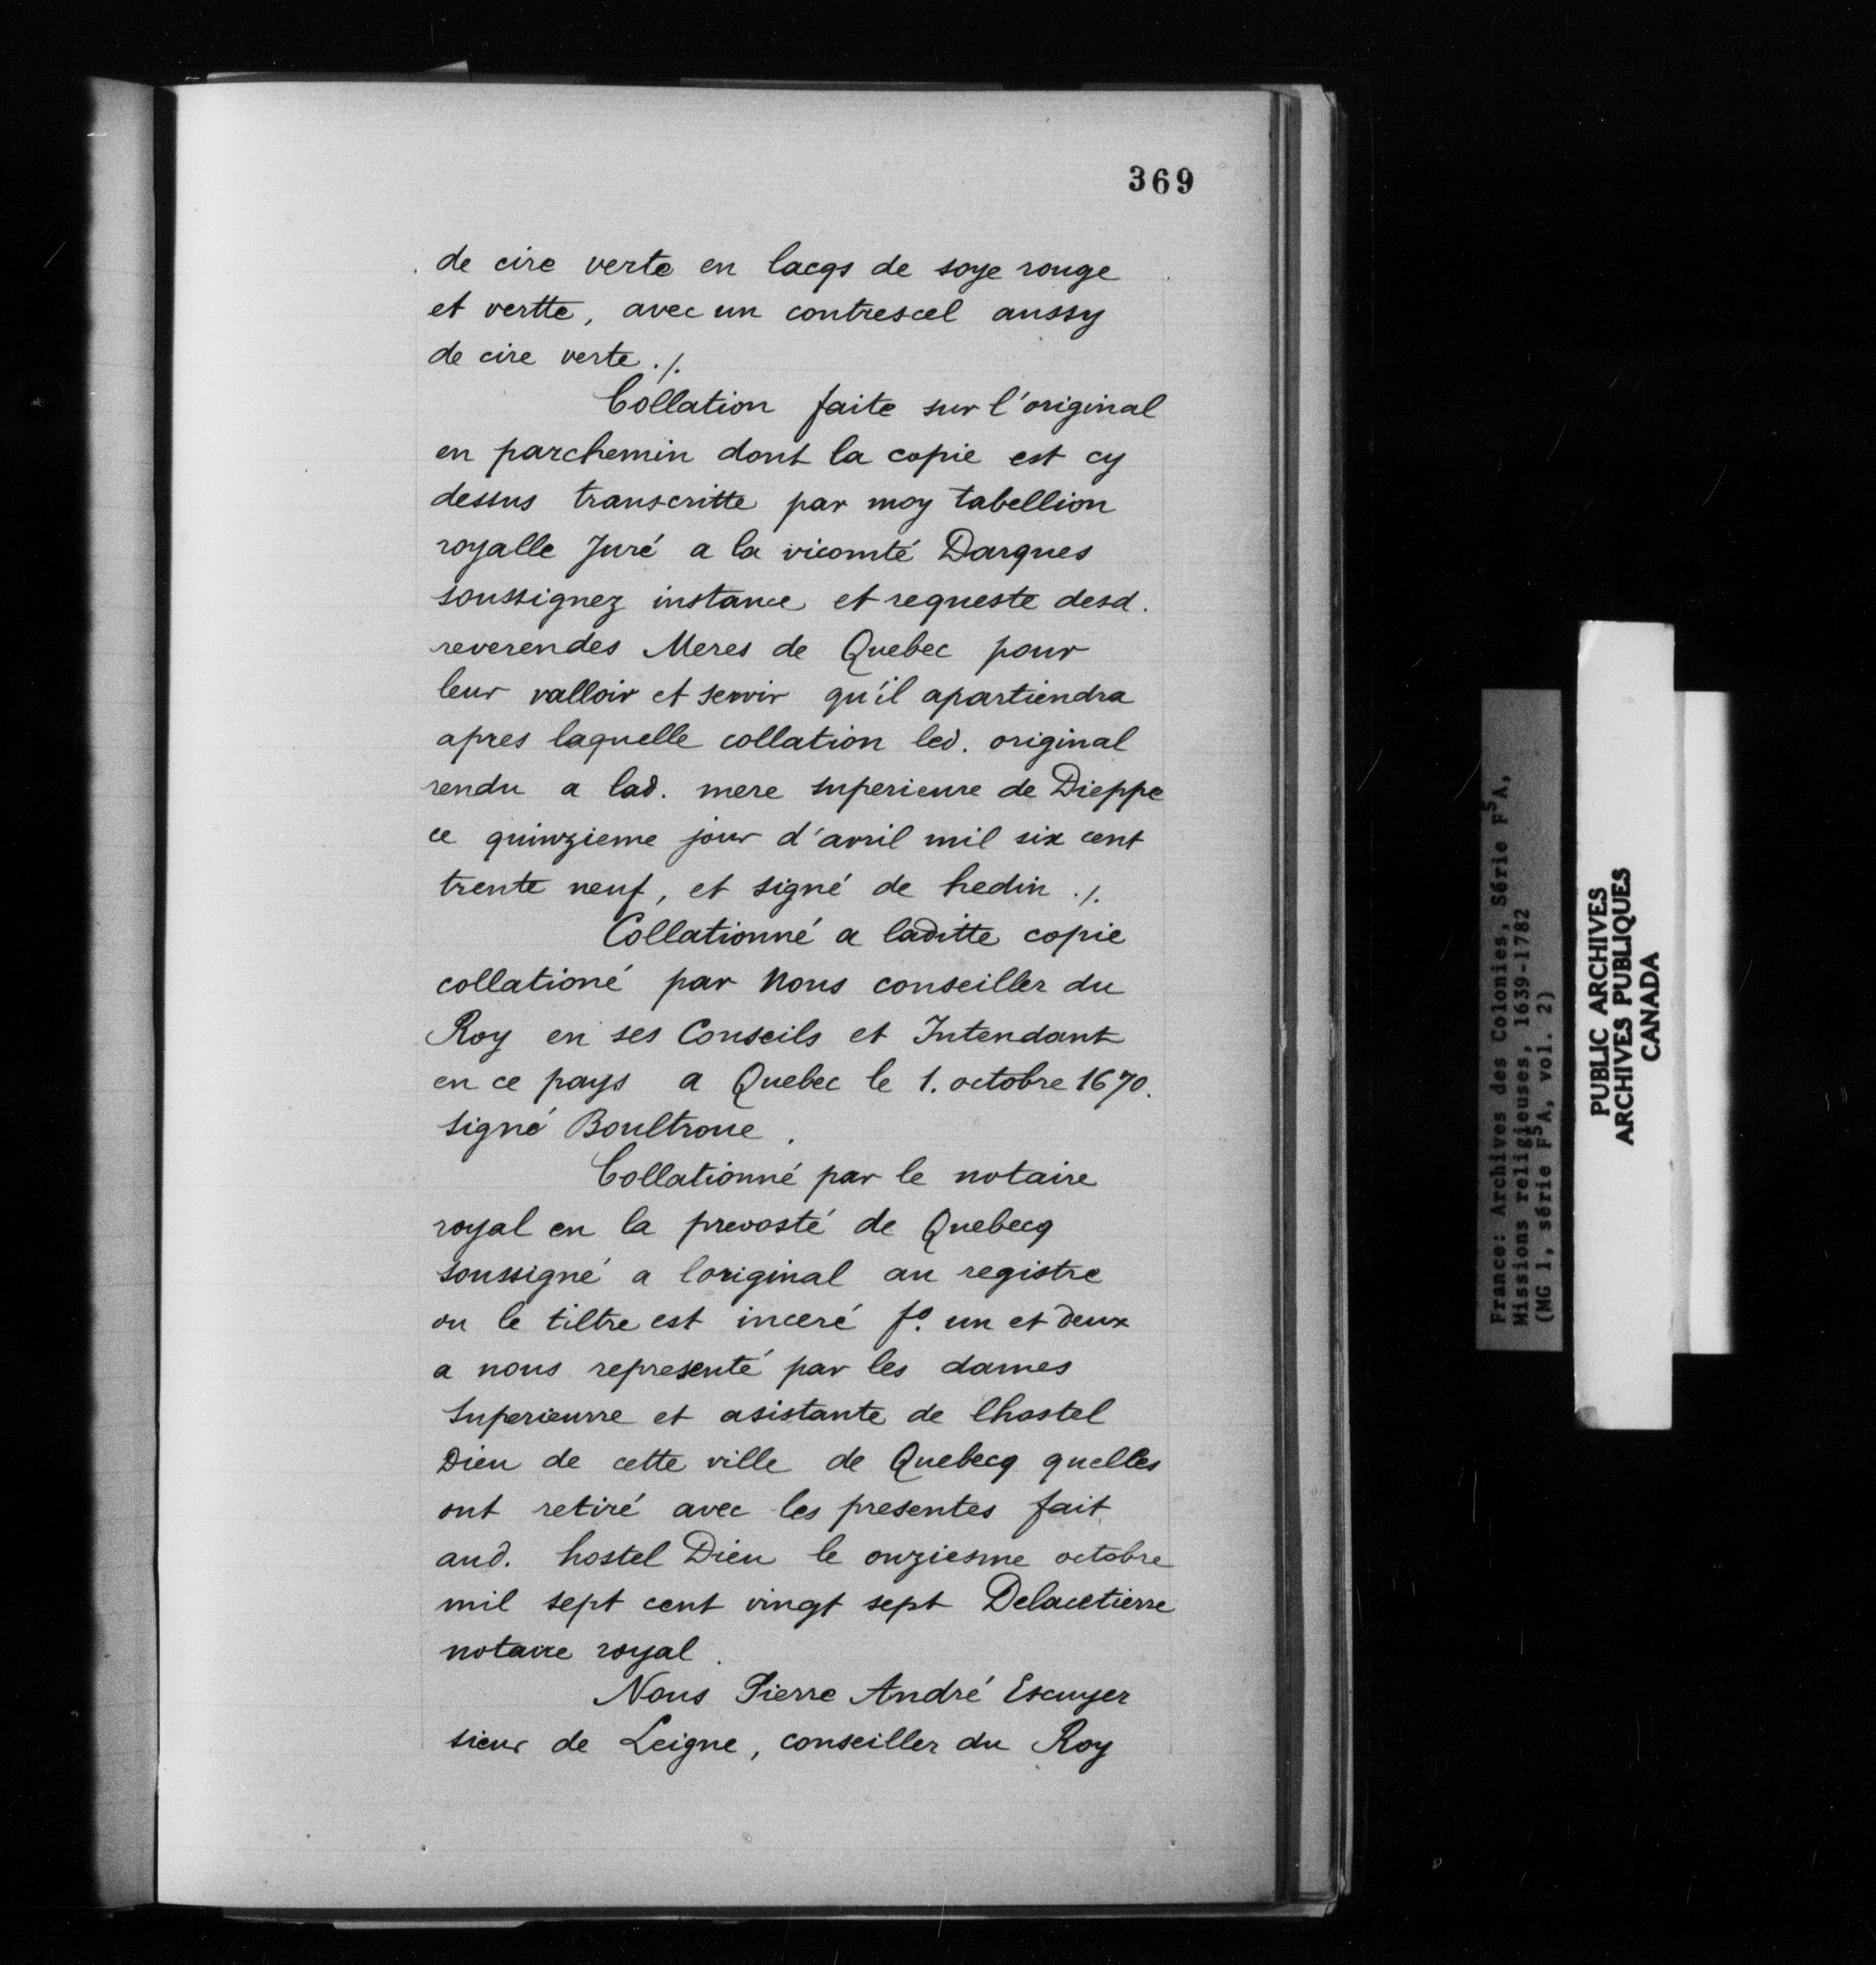 369
de cire verte en lacqs de soye rouge
et vertte, avec un contrescel aussy
de cire verte ./.
Collation faite sur l'original
en parchemin dont la copie est cy
dessus transcritte par moy tabellion
royalle Juré a la vicomté Darques
soussignez instance et requeste desd.
reverendes Meres de Quebec pour
leur valloir et servir qu'il apartiendra
apres laquelle collation led. original
rendu a lad. mere superieure de Dieppe
ce quinzieme jour d'avril mil six cent
trente neuf, et signé de hedin ./.
Collationné a laditte copie
collationé par Nous conseiller du
Roy en ses Conseils et Intendant
en ce pays a Quebec le 1. octobre 1670.
signé Boultroue.
Collationné par le notaire
royal en la prevosté de Quebecq
soussigné a loriginal au registre
ou le tiltre est inceré fo. un et deux
a nous representé par les dames
Superieurre et asistante de lhostel
Dieu de cette ville de Quebecq quelles
ont retiré avec les presentes fait
aud. hostel Dieu le onziesme octobre
mil sept cent vingt sept Delacetierre
notaire royal.
Nous Pierre André Escuyer
sieur de Leigne, conseiller du Roy
France: Archives des Colonies, Série F5A,
Missions religieuses, 1639-1782
(MG 1, série F5A, vol. 2)
PUBLIC ARCHIVES
ARCHIVES PUBLIQUES
CANADA